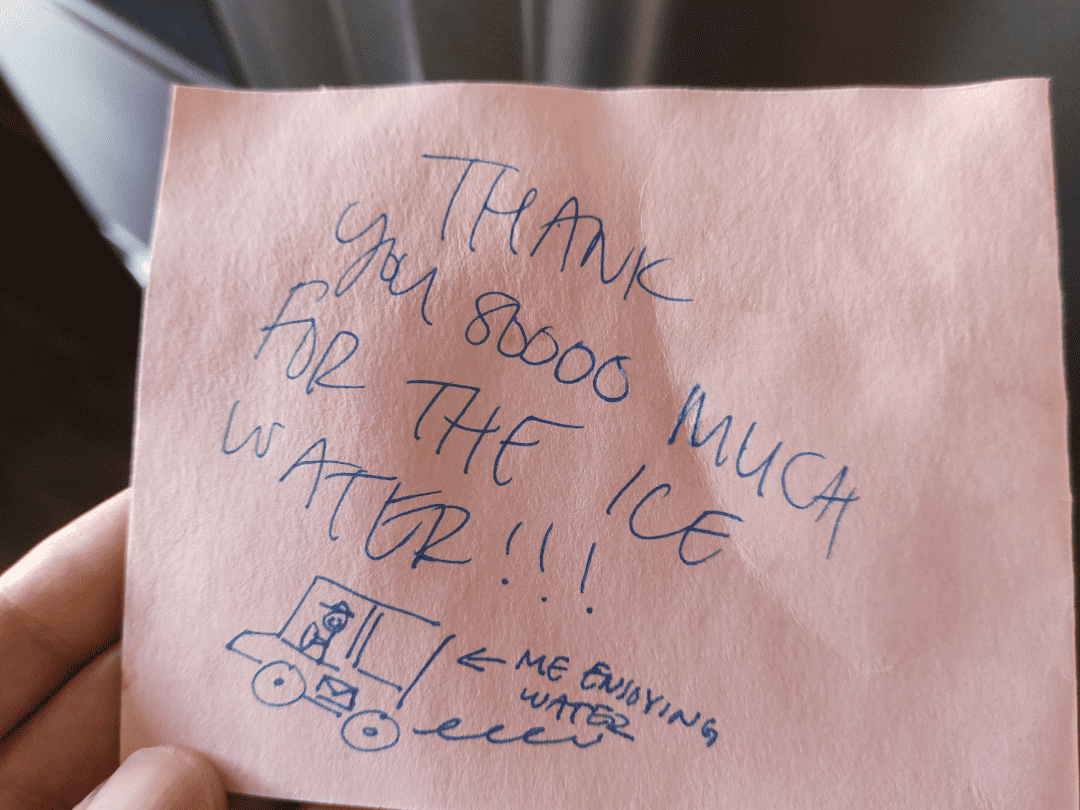 THANK
YOU SOOOO MUCH
FOR THE ICE
WATER!!!
← ME ENJOYING
WATER